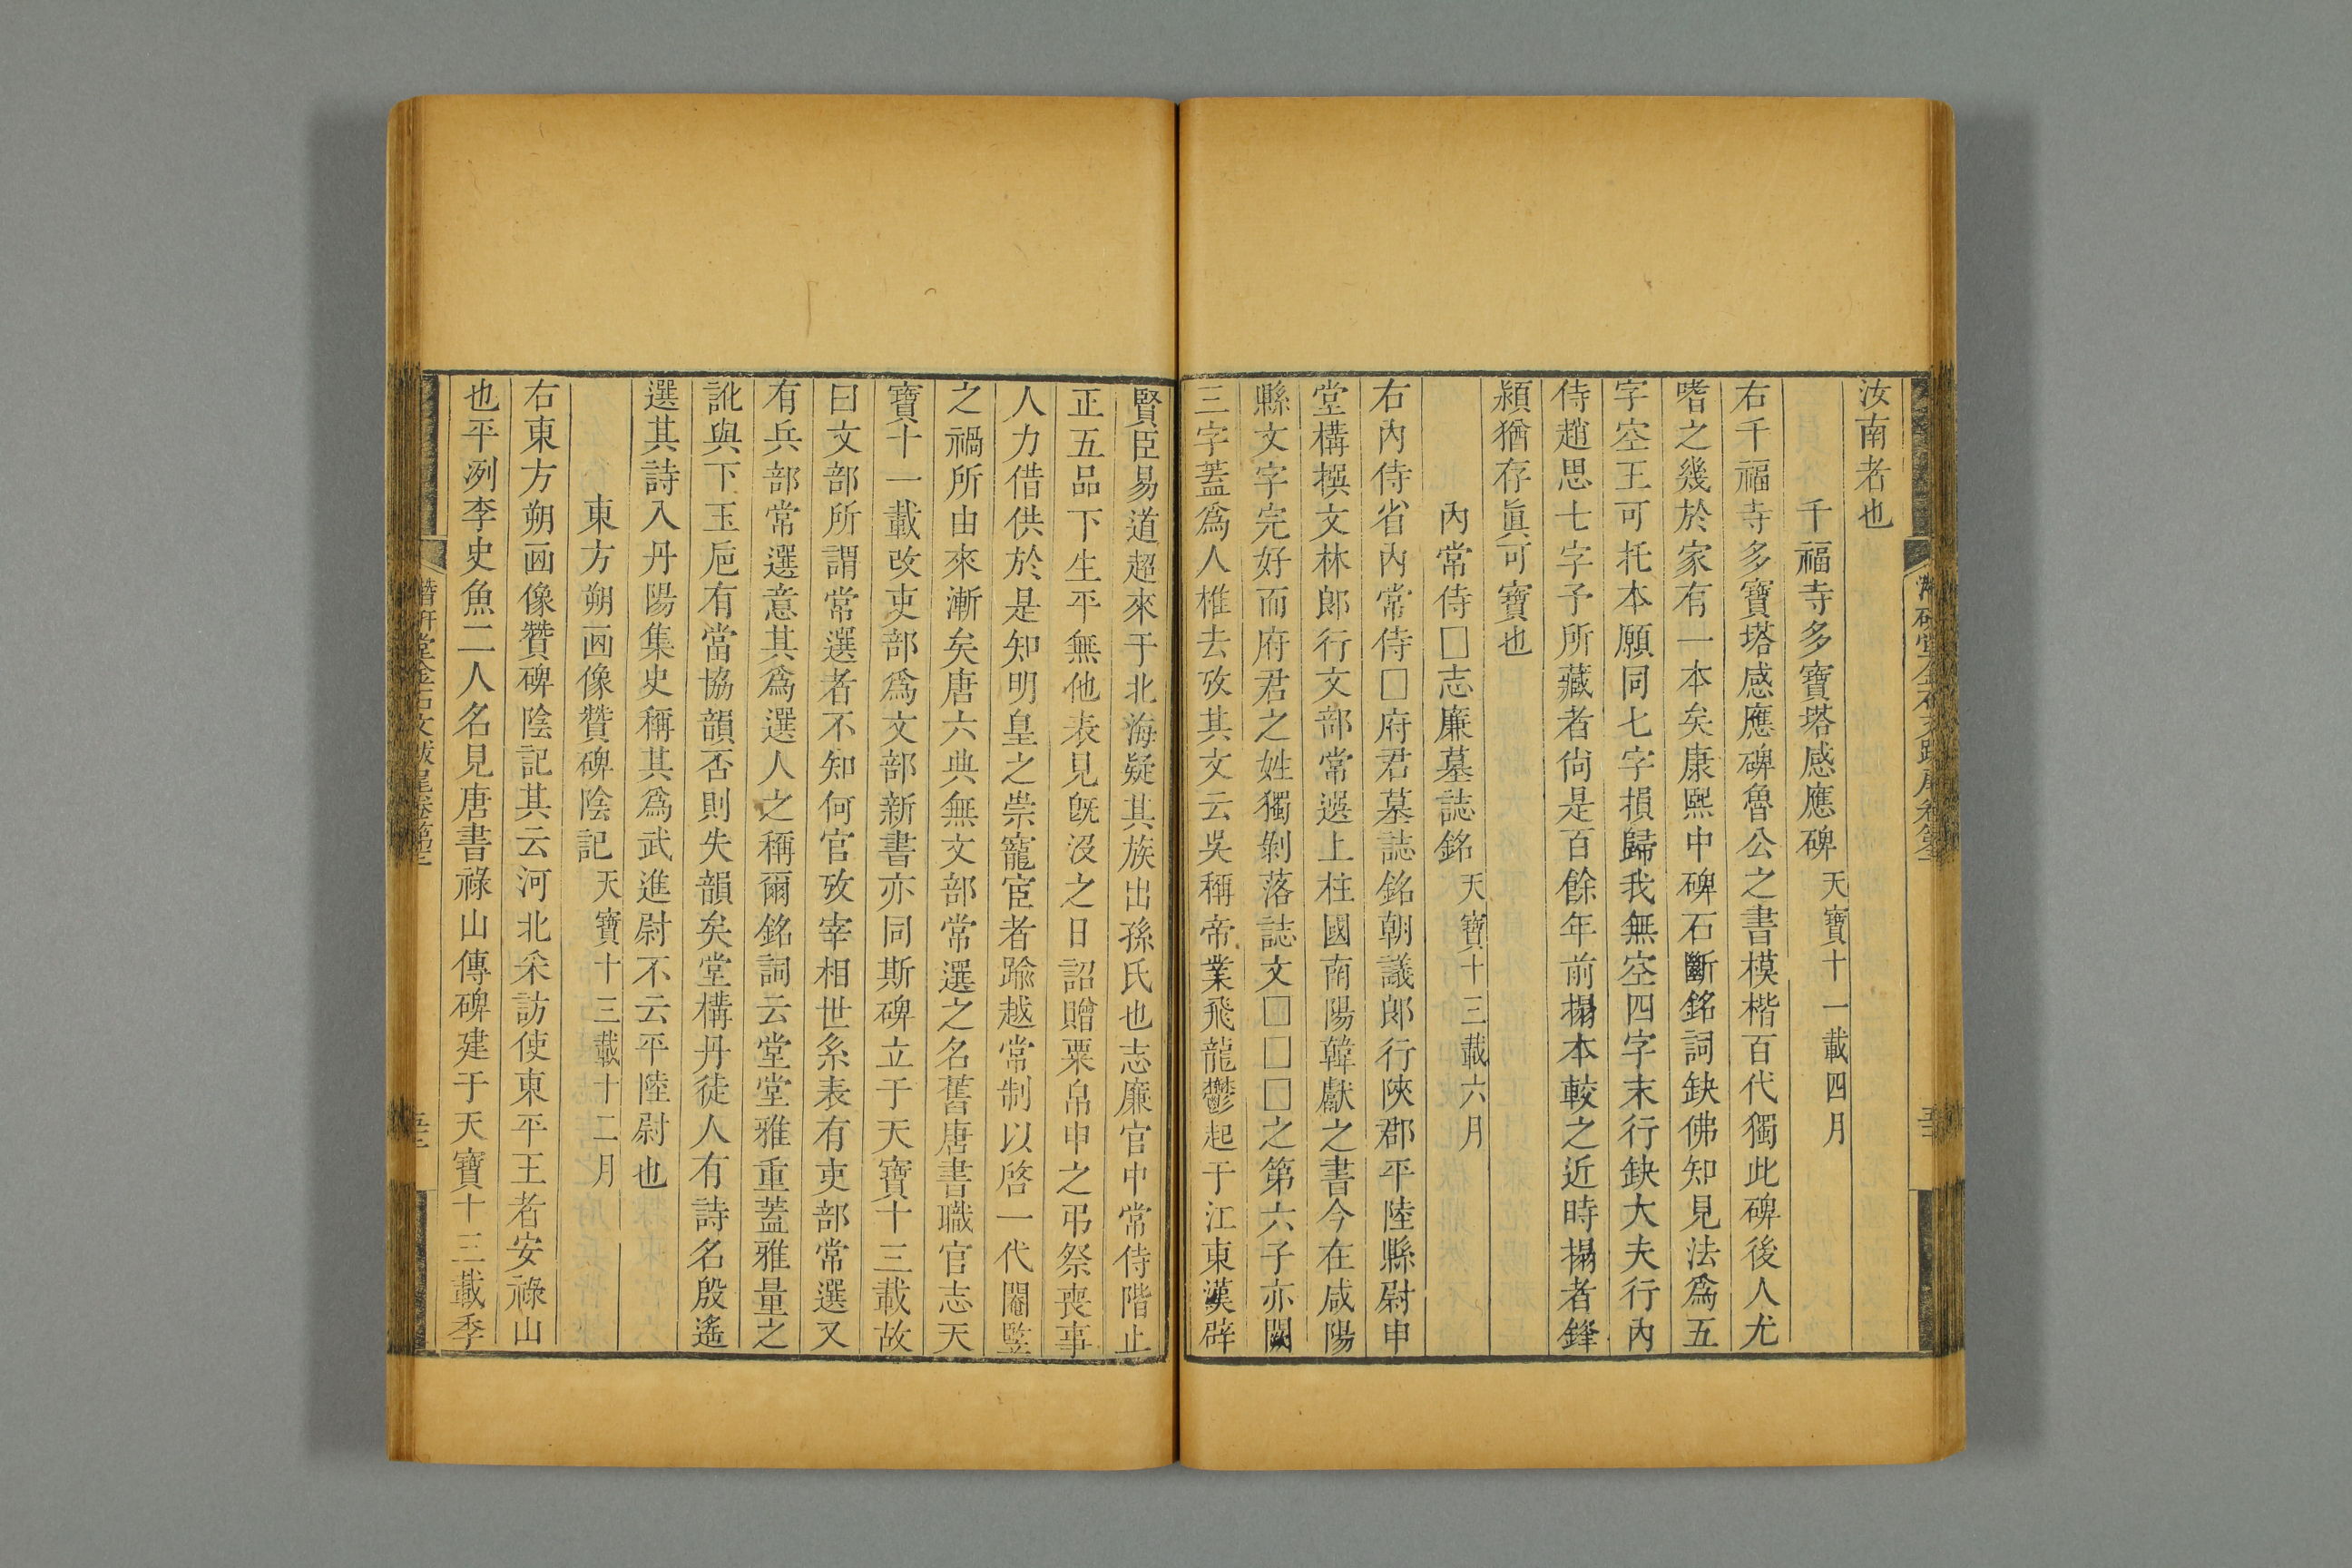 汝南者也
千福寺多寶塔感應碑 天寶十一載四月
右千福寺多寶塔感應碑魯公之書模楷百代獨此碑後人尤
嗜之幾於家有一本矣康熙中碑石斷銘詞缺佛知見法爲五
字空王可托本願同七字損歸我無空四字末行缺大夫行內
侍趙思七字予所藏者尙是百餘年前搨本較之近時搨者鋒
潁猶存眞可寶也
內常侍□志廉墓誌銘 天寶十三載六月
右內侍省內常侍□府君墓誌銘朝議郞行陝郡平陸縣尉申
堂構撰文林郞行文部常選上柱國南陽韓獻之書今在咸陽
縣文字完好而府君之姓獨剝落誌文□□□之第六子亦闕
三字蓋爲人椎去攷其文云吳稱帝業飛龍鬱起于江東漢辟
賢臣易道超來于北海疑其族出孫氏也志廉官中常侍階止
正五品下生平無他表見旣沒之日詔贈粟帛申之弔祭喪事
人力借供於是知明皇之崇寵宦者踰越常制以啓一代閹豎
之禍所由來漸矣唐六典無文部常選之名舊唐書職官志天
寶十一載改吏部爲文部新書亦同斯碑立于天寶十三載故
曰文部所謂常選者不知何官攷宰相世系表有吏部常選又
有兵部常選意其爲選人之稱爾銘詞云堂堂雅重蓋雅量之
訛與下玉巵有當協韻否則失韻矣堂構丹徒人有詩名殷遙
選其詩入丹陽集史稱其爲武進尉不云平陸尉也
東方朔畫像贊碑陰記 天寶十三載十二月
右東方朔畫像贊碑陰記其云河北采訪使東平王者安祿山
也平洌李史魚二人名見唐書祿山傳碑建于天寶十三載季
潛研堂金石文跋尾卷第